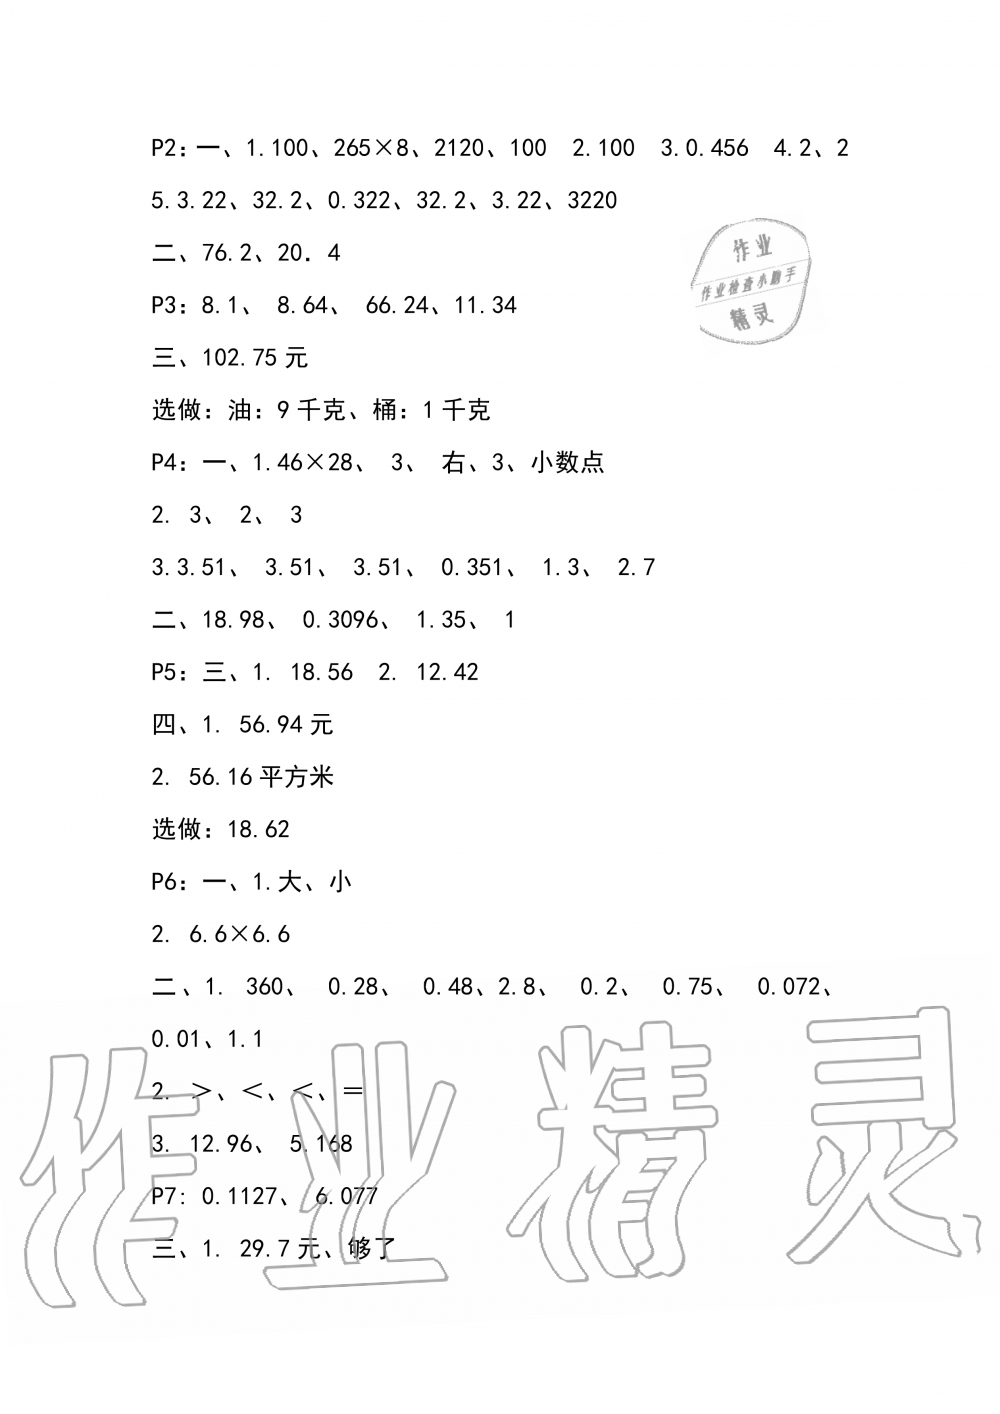 P2：一、1.100、265×8、2120、100  2.100  3.0.456  4.2、2
5.3.22、32.2、0.322、32.2、3.22、3220
作业
二、76.2、20．4
作业检查小助手
P3：8.1、 8.64、 66.24、11.34
精灵
三、102.75 元
选做：油：9 千克、桶：1 千克
P4：一、1.46×28、 3、 右、3、小数点
2. 3、 2、 3
3.3.51、 3.51、 3.51、 0.351、 1.3、 2.7
二、18.98、 0.3096、 1.35、 1
P5：三、1. 18.56  2. 12.42
四、1. 56.94 元
2. 56.16 平方米
选做：18.62
P6：一、1.大、小
2. 6.6×6.6
二、1. 360、 0.28、 0.48、2.8、 0.2、 0.75、 0.072、
0.01、1.1
2. ＞、＜、＜、＝
3. 12.96、 5.168
P7: 0.1127、 6.077
三、1. 29.7 元、够了
作业精灵